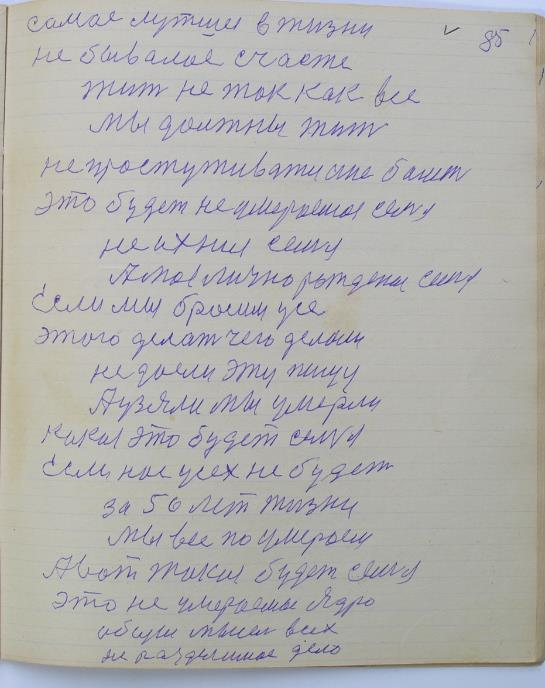 85
самое лутшее в жизни
не бывалое счасте
жит не так как все
мы должны жит
не простуживатися болет
Это будет не умераемая семя
не ихния семя
А моя лично рожденая семя
Если мы бросим усе
этого делат чего делали
не доели эту пищу
А узяли мы умерли
какая это будет семя
Если нас усех не будет
за 50 лет жизни
мы все поумераем
А вот такая будет семя
Это не умераемое ядро
общая мысел всех
не раздельное дело